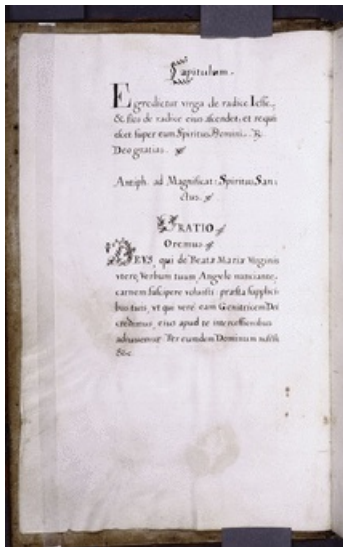 Capitulum.
Egredietur virga de radice Iesse,
& flos de radice eius ascendet: et requi
escet super eum Spiritus Domini. ℟.
Deo gratias.
Antiph. ad Magnificat: Spiritus San-
ctus.
ORATIO
Oremus.
DEVS, qui de Beatæ Mariæ Virginis
vtero, Verbum tuum, Angelo nunciante,
carnem suscipere voluisti: præsta supplici-
bus tuis, vt qui verè eam Genitricem Dei
credimus, eius apud te intercessionibus
adiuuemur. Per eundem Dominum
&c.